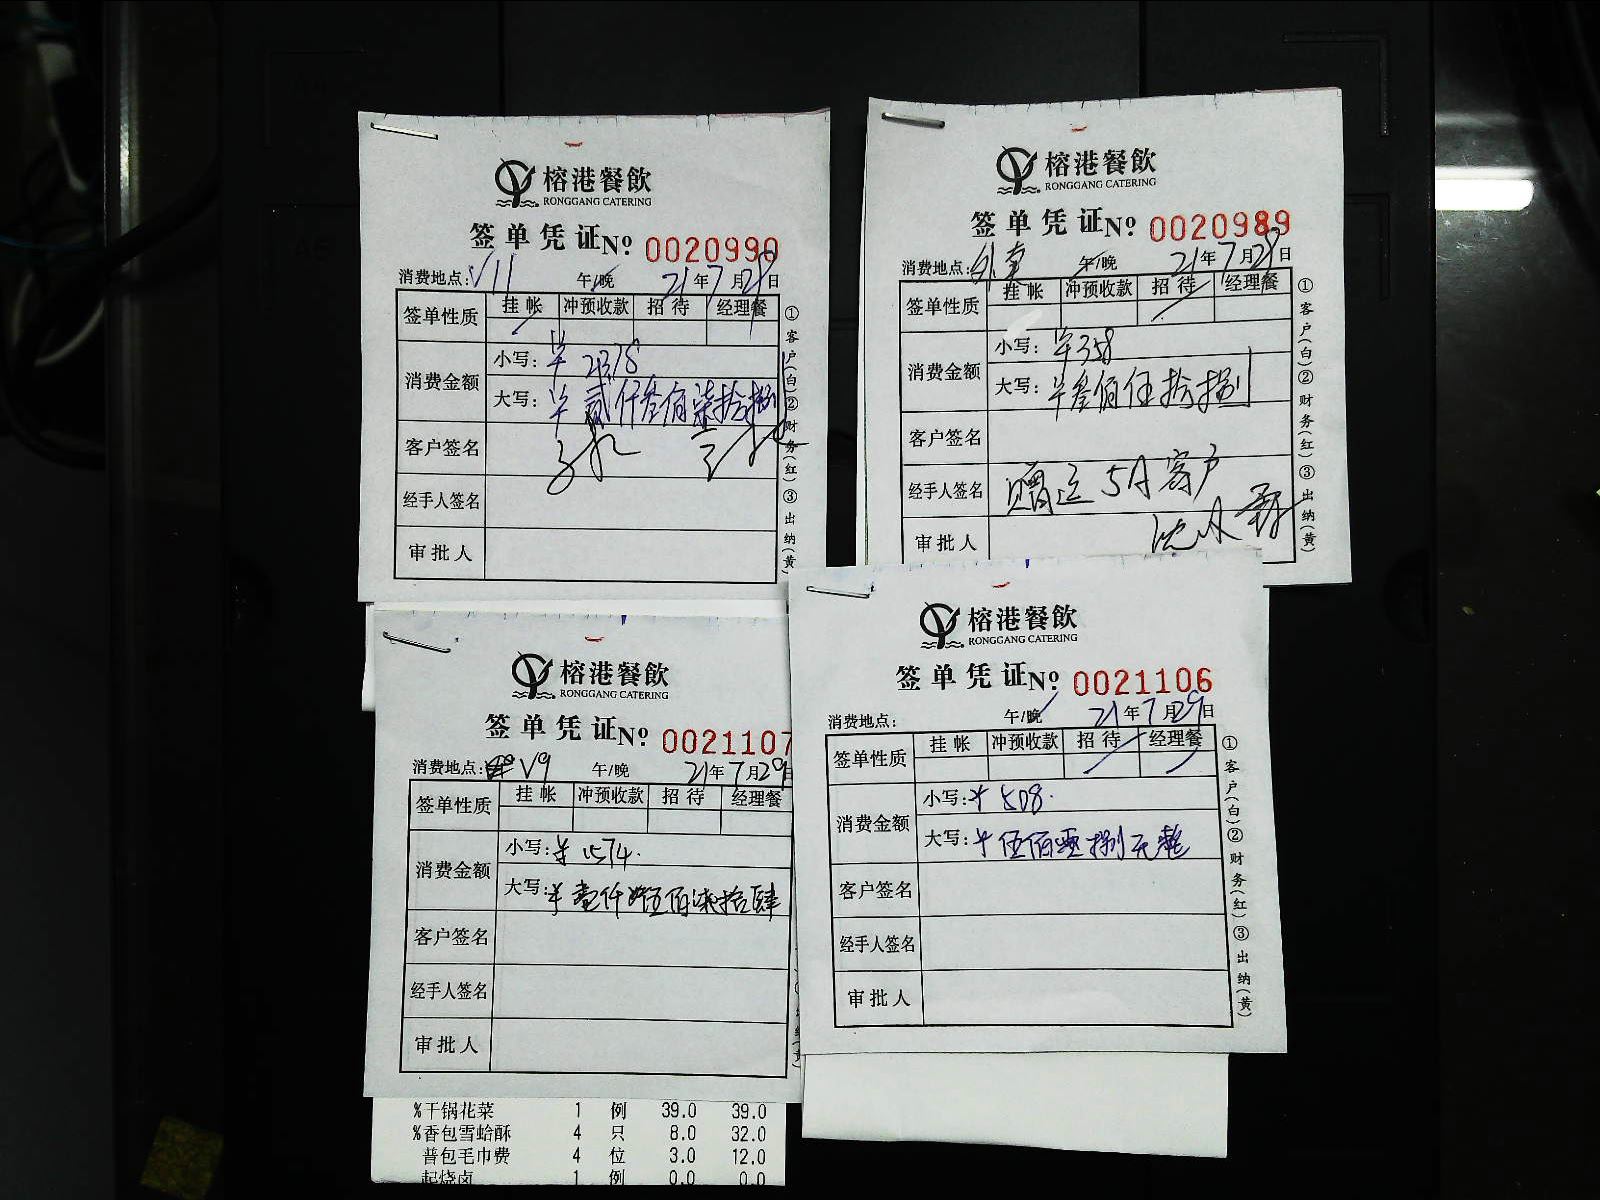 榕港餐飲
RONGGANG CATERING
签单凭证No 0020990
消费地点: V11 午/晚 21年7月29日
签单性质 挂帐 冲预收款 招待 经理餐
消费金额 小写: ¥2378
大写: ¥贰仟叁佰柒拾捌
客户签名
经手人签名
审批人
①客户(白)②财务(红)③出纳(黄)
榕港餐飲
RONGGANG CATERING
签单凭证No 0020989
消费地点: 外卖 午/晚 21年7月29日
签单性质 挂帐 冲预收款 招待 经理餐
消费金额 小写: ¥358
大写: ¥叁佰伍拾捌
客户签名
经手人签名 赠送5A客户
审批人
①客户(白)②财务(红)③出纳(黄)
榕港餐飲
RONGGANG CATERING
签单凭证No 0021107
消费地点: V9 午/晚 21年7月29日
签单性质 挂帐 冲预收款 招待 经理餐
消费金额 小写: ¥1574.
大写: ¥壹仟伍佰柒拾肆
客户签名
经手人签名
审批人
%干锅花菜 1 例 39.0 39.0
%香包雪蛤酥 4 只 8.0 32.0
普包毛巾费 4 位 3.0 12.0
起烧卤 1 例 0.0 0.0
榕港餐飲
RONGGANG CATERING
签单凭证No 0021106
消费地点: 午/晚 21年7月29日
签单性质 挂帐 冲预收款 招待 经理餐
消费金额 小写: ¥508.
大写: ¥伍佰零捌元整
客户签名
经手人签名
审批人
①客户(白)②财务(红)③出纳(黄)